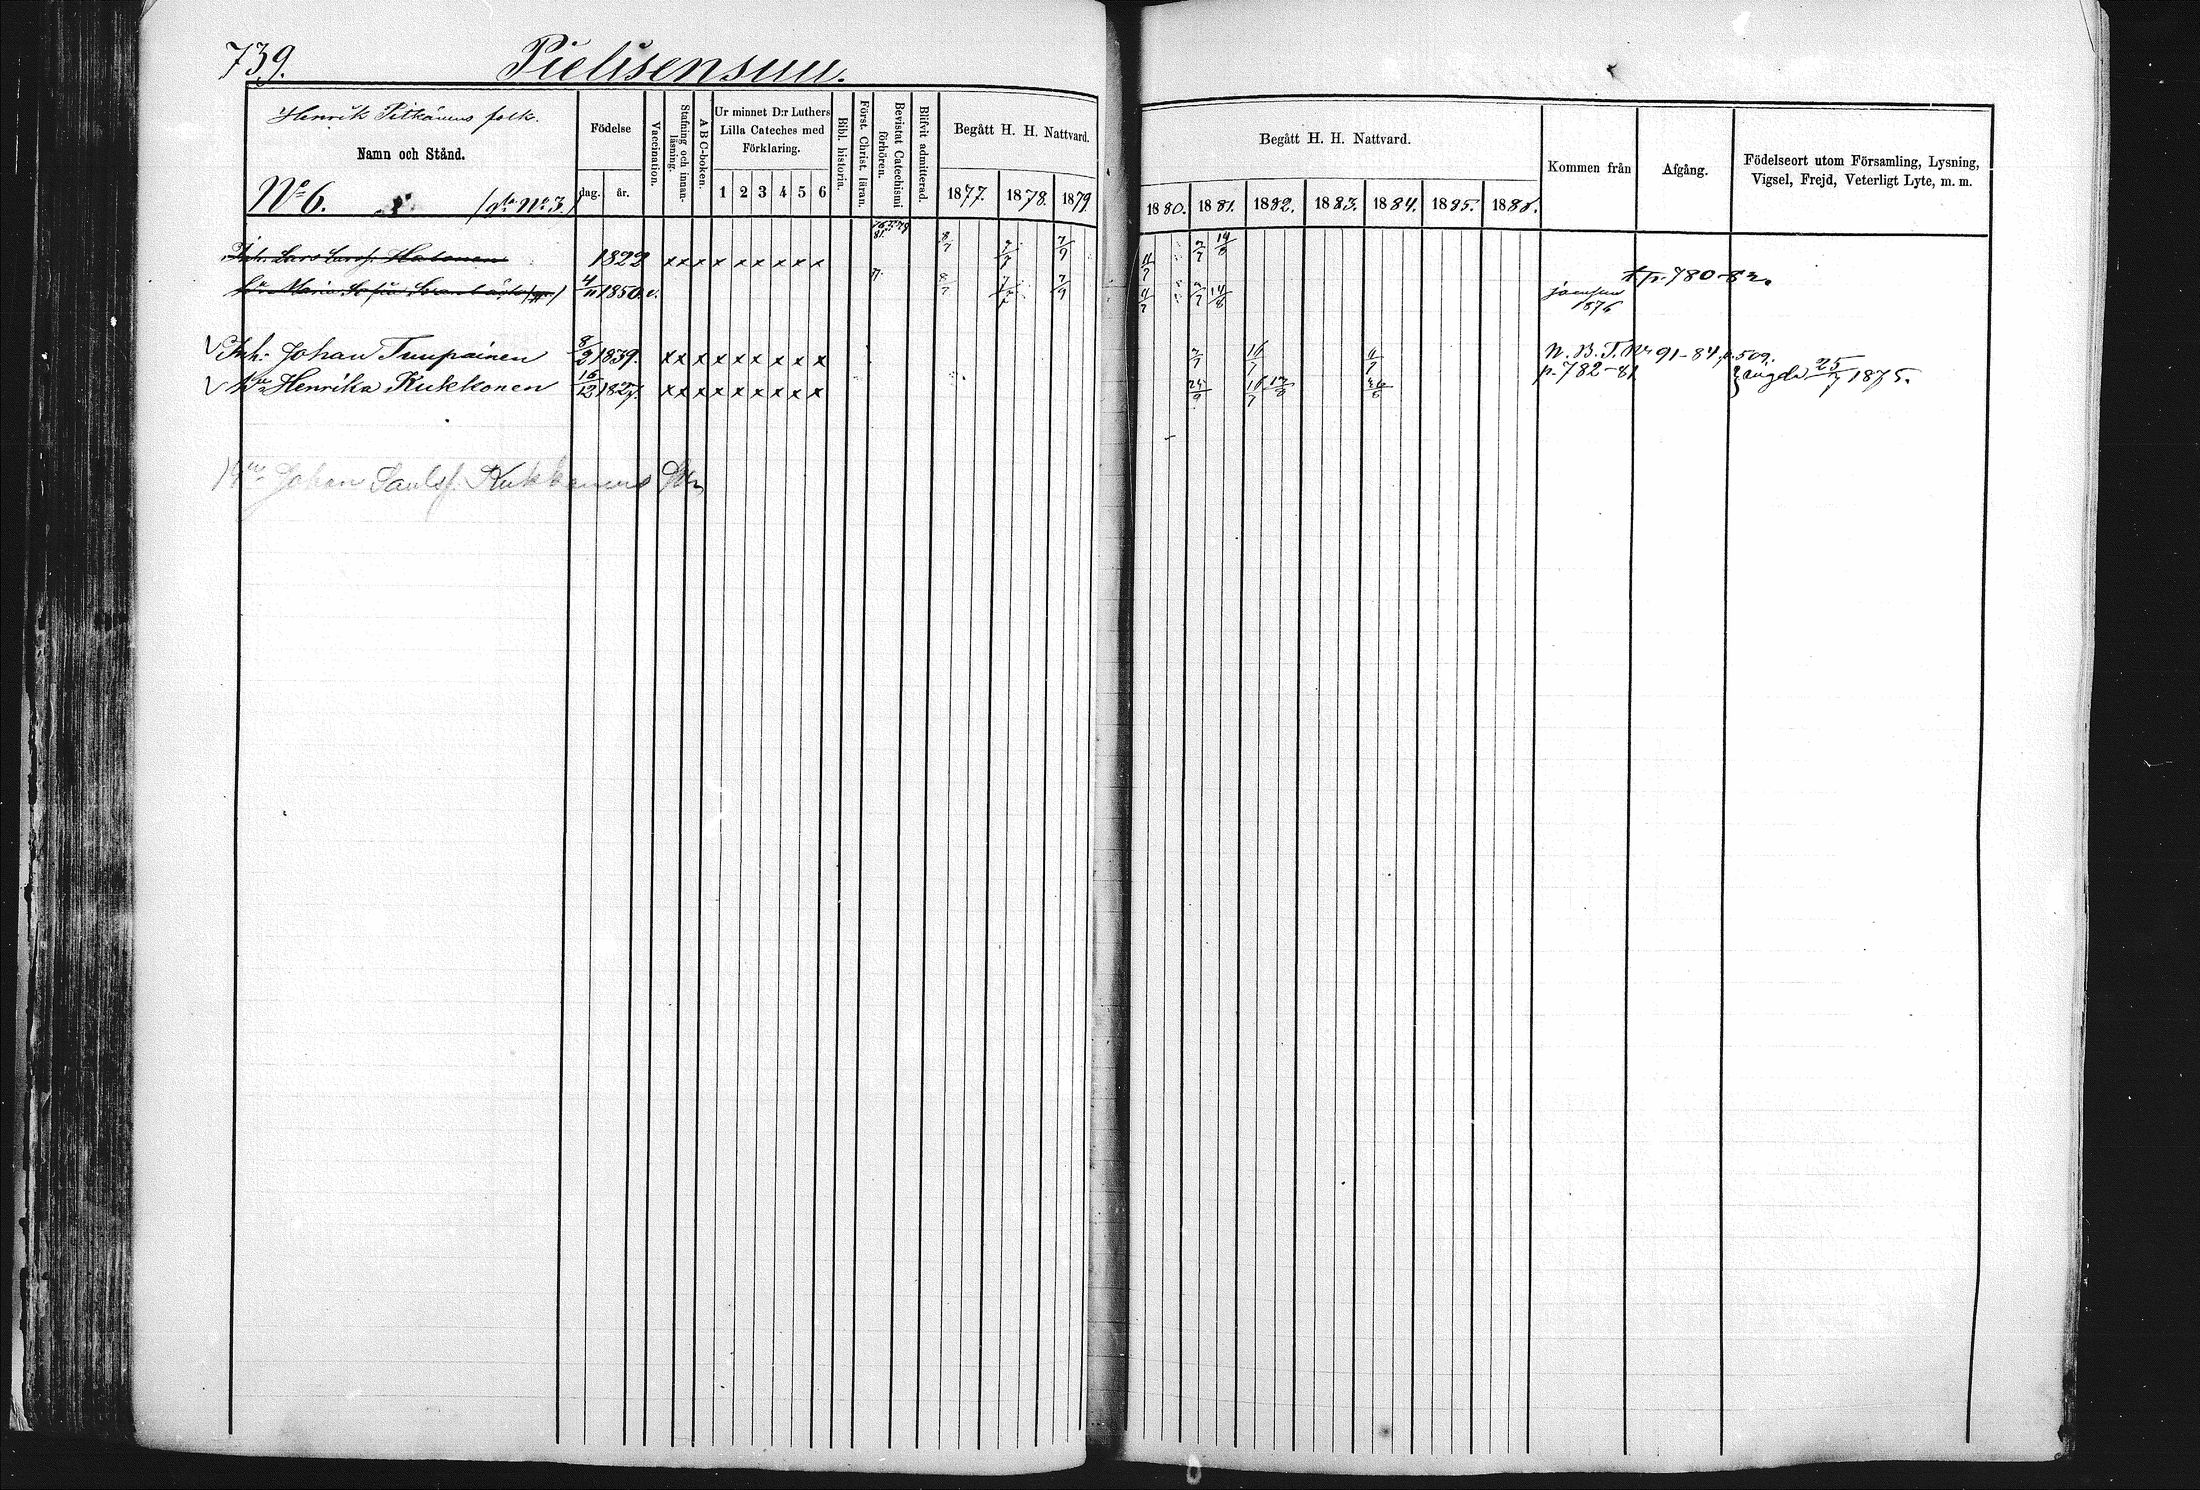 739.
Pielisensuu.
Henrik Pitkänens folk.
Namn och Stånd.
No 6. No 3.
Födelse
dag. år.
Vaccination.
Stafning och innanläsning.
A B C-boken.
Ur minnet D:r Luthers Lilla Cateches med Förklaring.
1 2 3 4 5 6
Bibl. historia.
Först. Christ. läran.
Bevistat Catechismi förhören.
Blifvit admitterad.
Begått H. H. Nattvard.
1877. 1878. 1879
Begått H. H. Nattvard.
1880. 1881. 1882. 1883. 1884. 1885. 1886.
Kommen från
Afgång.
Födelseort utom Församling, Lysning, Vigsel, Frejd, Veterligt Lyte, m. m.
Inh. Lars Larsf. Hatonen 1822 x x x x x x x x x 8/7 7/7 7/9 11/7 7/7 14/8
Maria Sofia 4/11 1850. v. 8/7 7/7 7/9 11/7 7/7 14/8 Joensuu 1876 p. 780-82.
Inh. Johan Tuupainen 8/2 1839. x x x x x x x x x 7/7 16/7 11/7 N. B. T. No 91-84, p. 509.
Hu Henrika Kukkonen 16/12 1827. x x x x x x x x x 16/7 p. 782-81 vigde 25/7 1875.
Johan Paulsf. Kukkonens